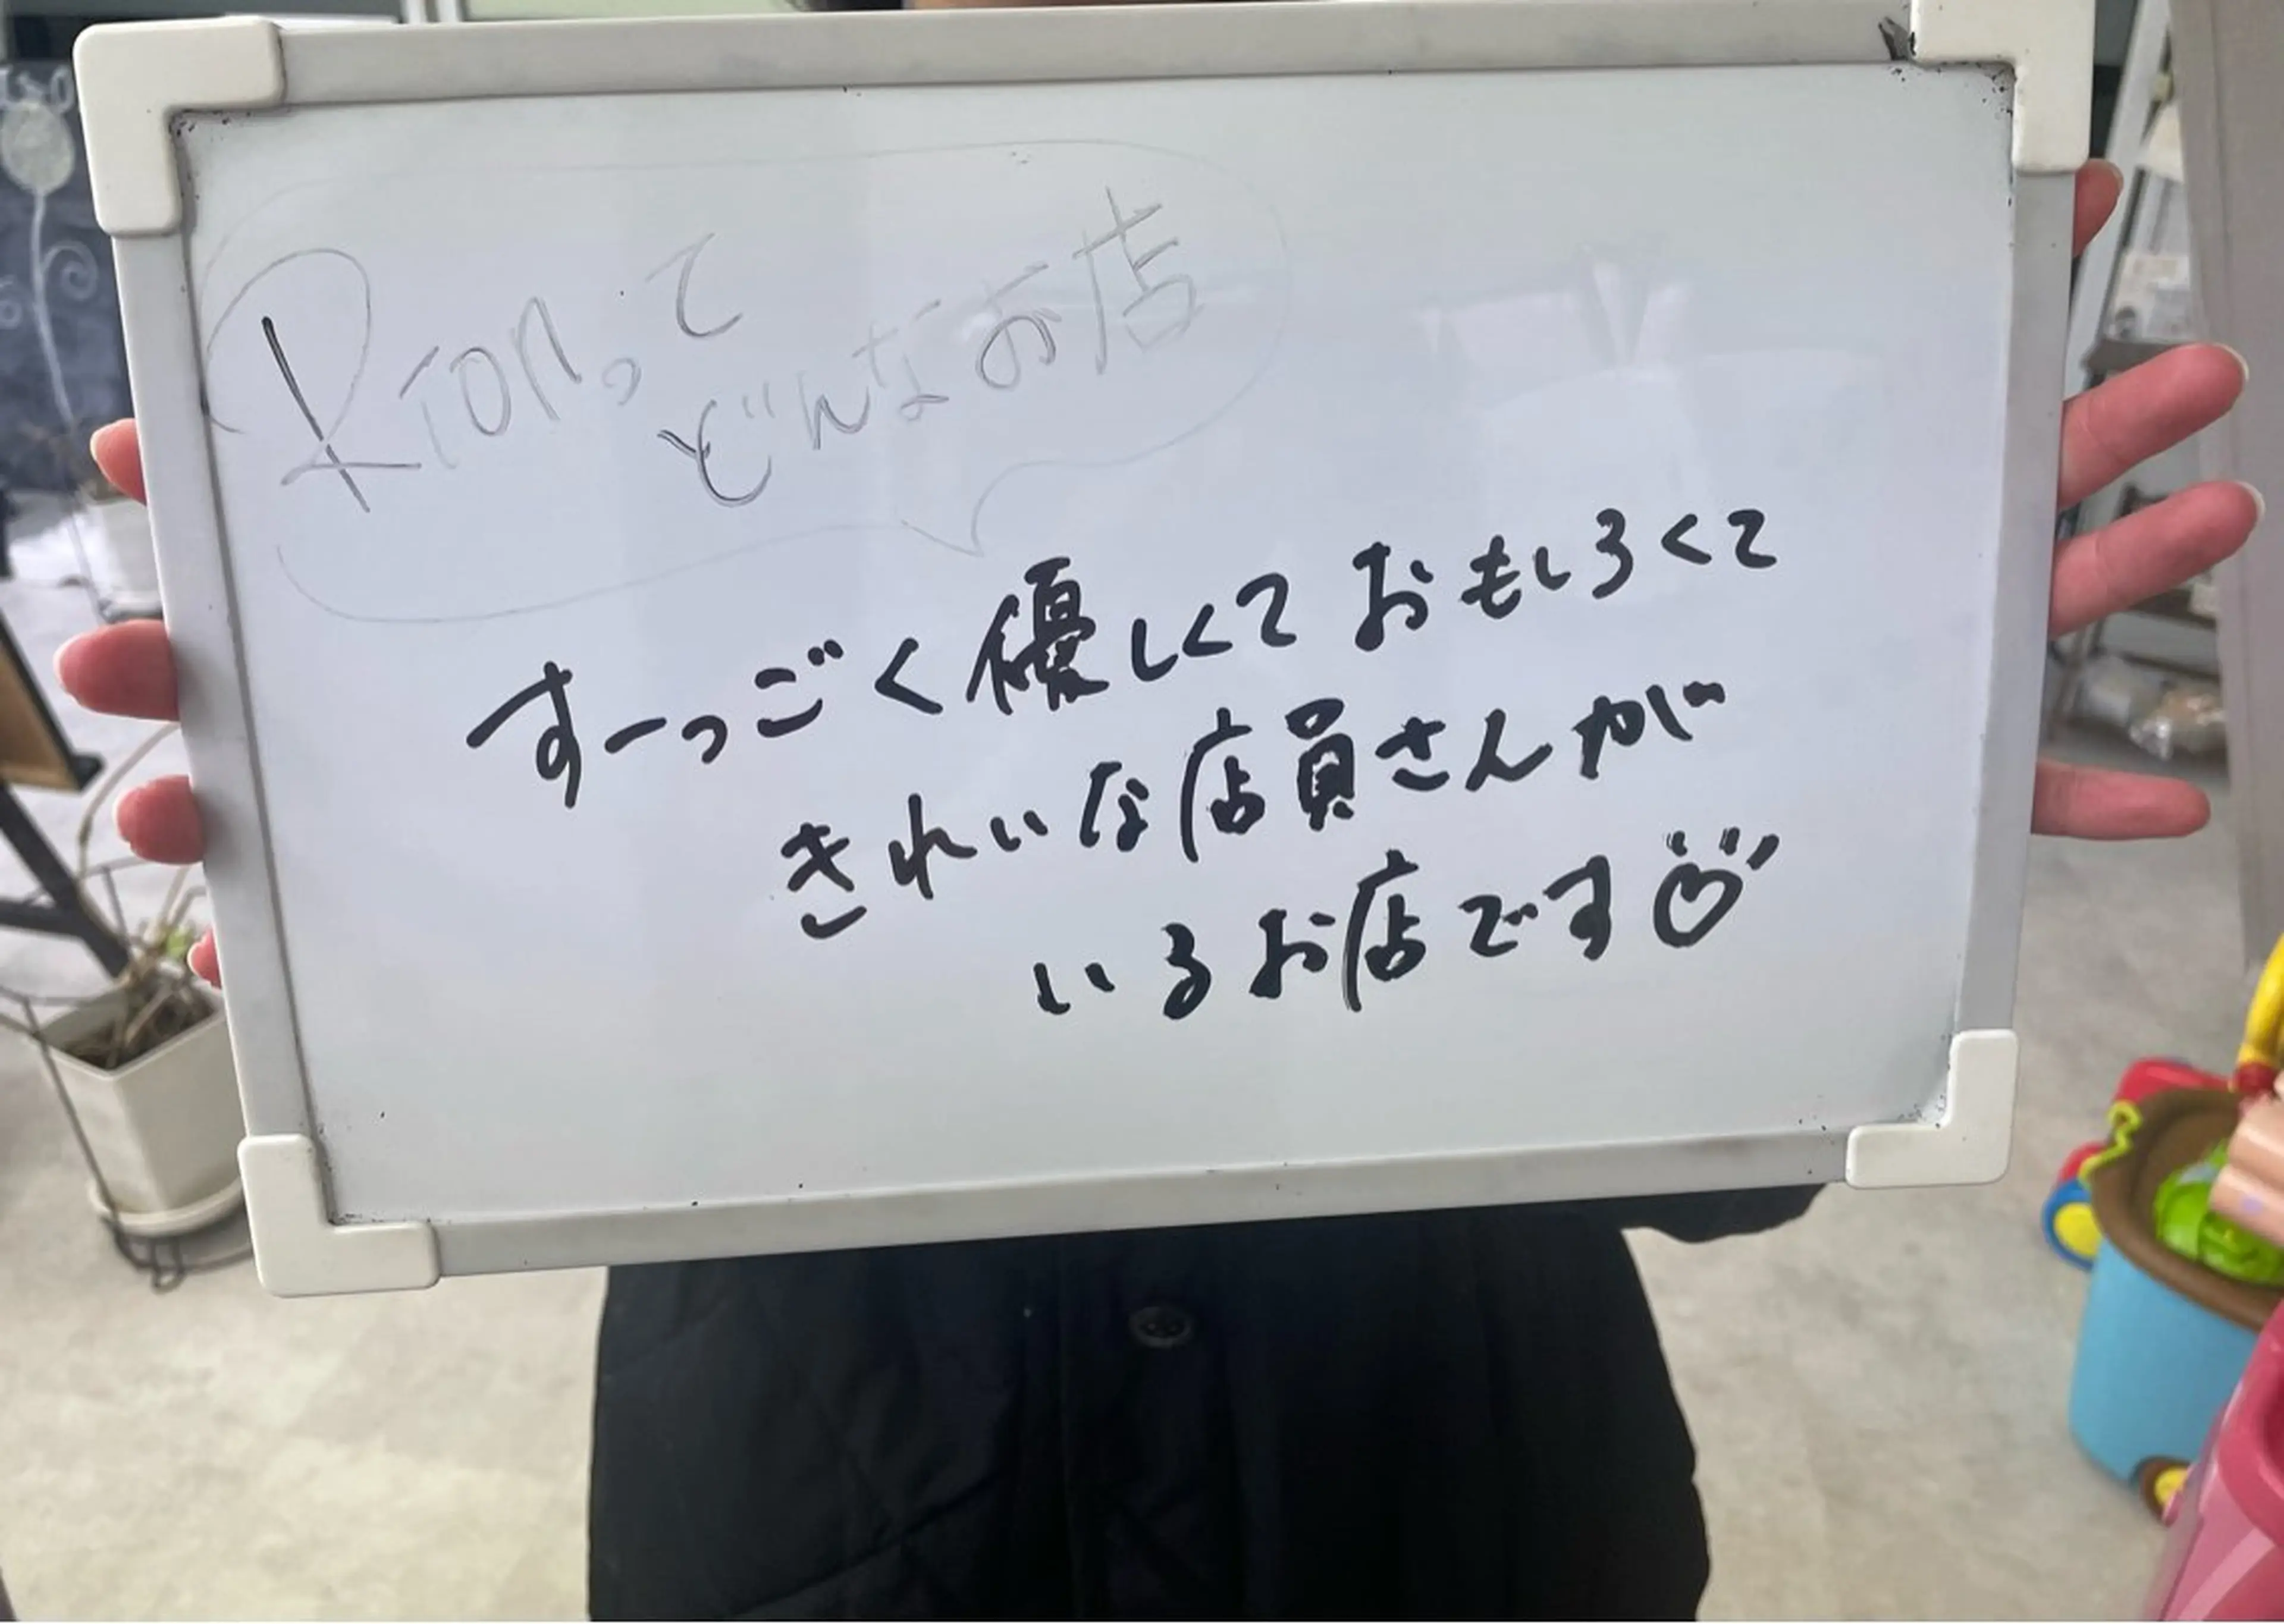 Rionって
どんなお店
すーっごく優しくておもしろくて
きれいな店員さんが
いるお店です